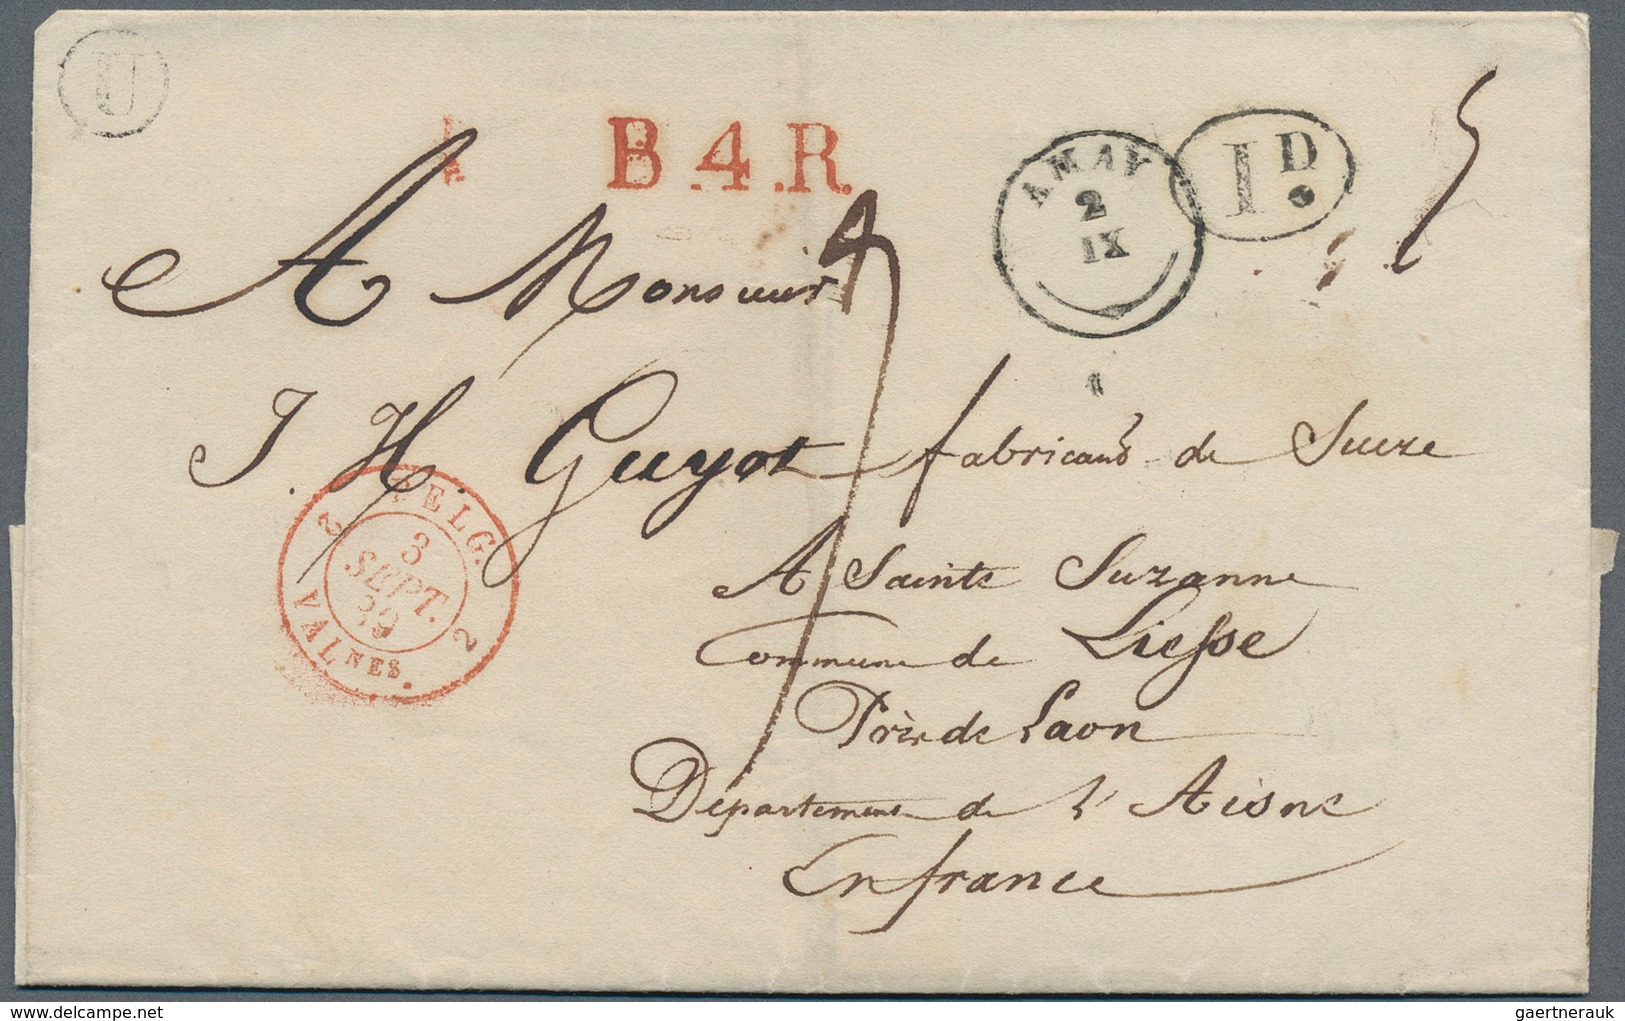 U
B.4.R.
AMAY
2
IX
1 D
A Monsieur
J. H. Guyot fabricant de Sucre
BELG.
2 2
3
SEPT.
39
VALNES.
A Sainte Suzanne
Commune de Liesse
Près de Laon
Département de l'Aisne
En france
gaertnerauk
www.delcampe.net